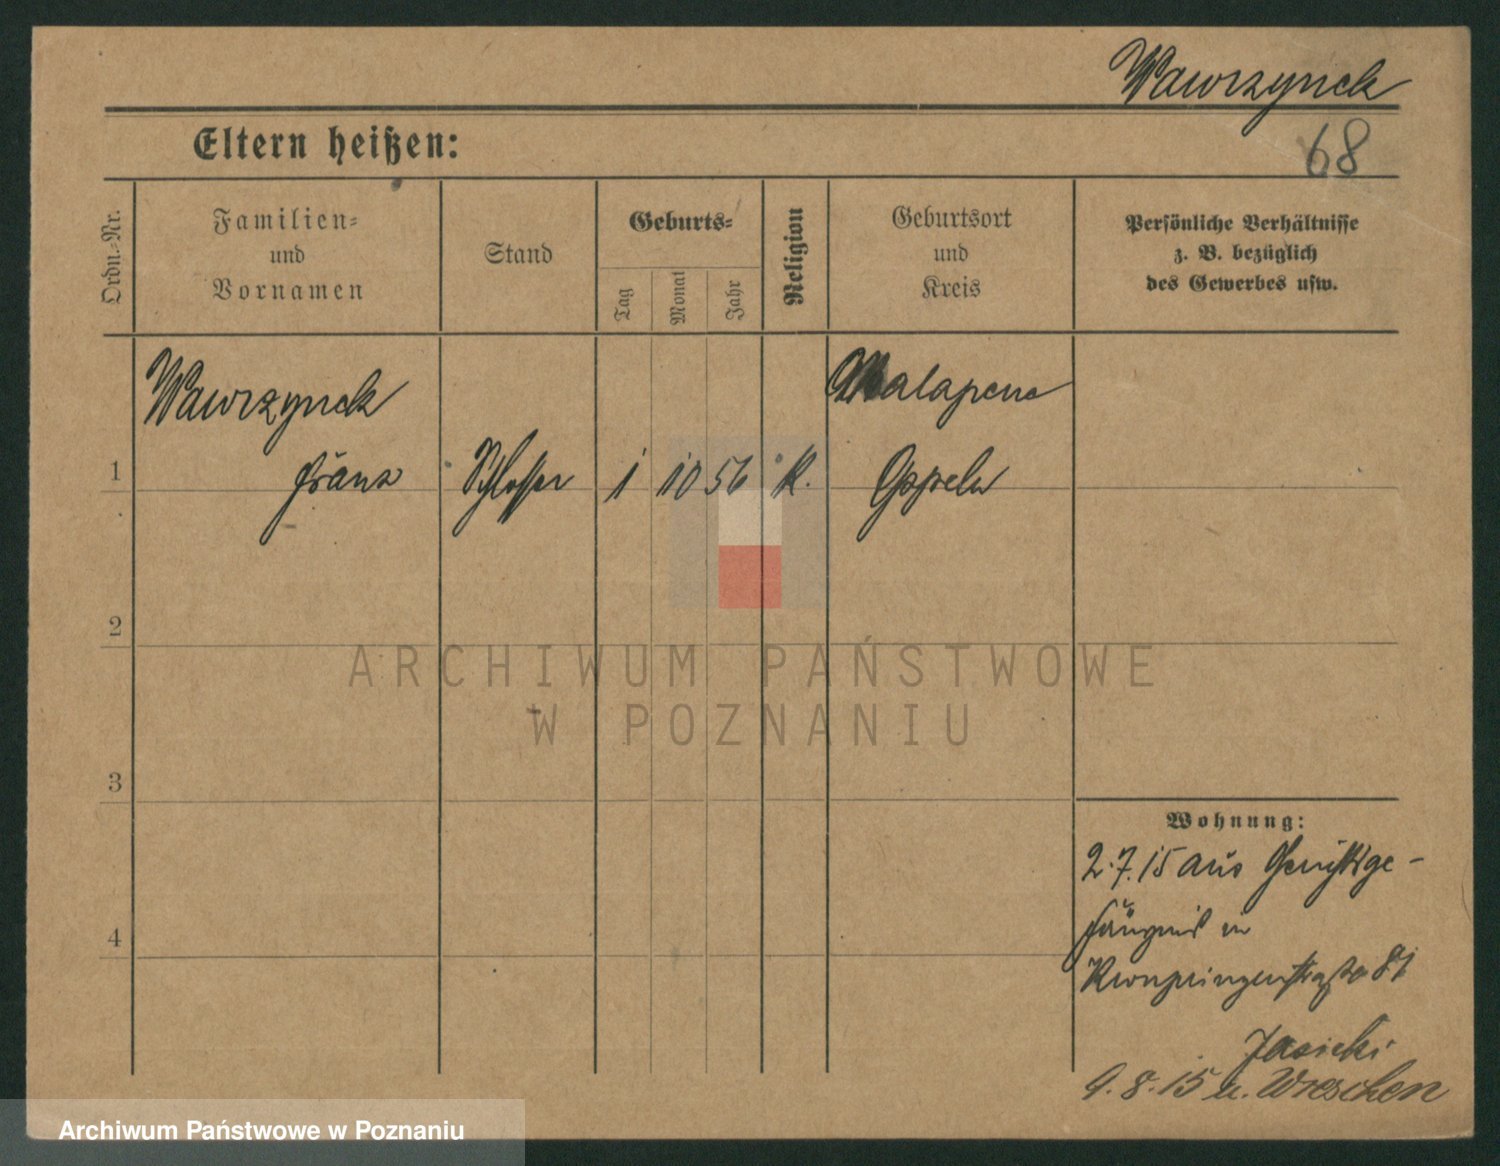 Wawrzynek
68
Eltern heißen:
Ordn.-Nr.
Familien-
und
Vornamen
Stand
Geburts-
Tag
Monat
Jahr
Religion
Geburtsort
und
Kreis
Persönliche Verhältnisse
z. B. bezüglich
des Gewerbes usw.
Wawrzynek
Malapane
1
Franz
Schlosser
1
10
56
K.
Oppeln
2
ARCHIWUM PAŃSTWOWE
W POZNANIU
3
Wohnung:
2.7.15 aus Gerichtsge-
fängnis in
4
Kronprinzenstraße 81
Jasicki
9.8.15 n. Wreschen
Archiwum Państwowe w Poznaniu